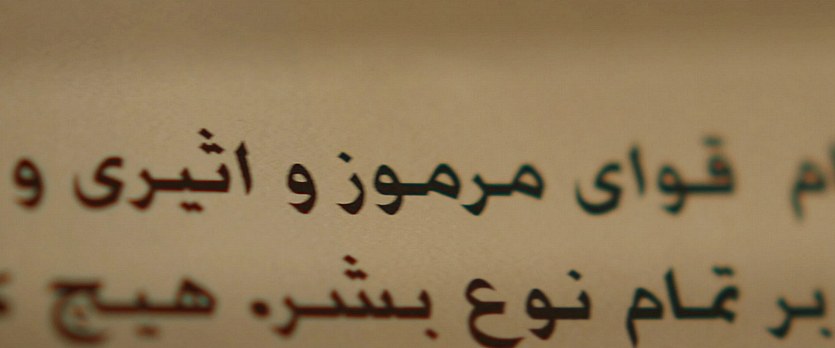 قوای مرموز و اثیری و
بر تمام نوع بشر. هیچ